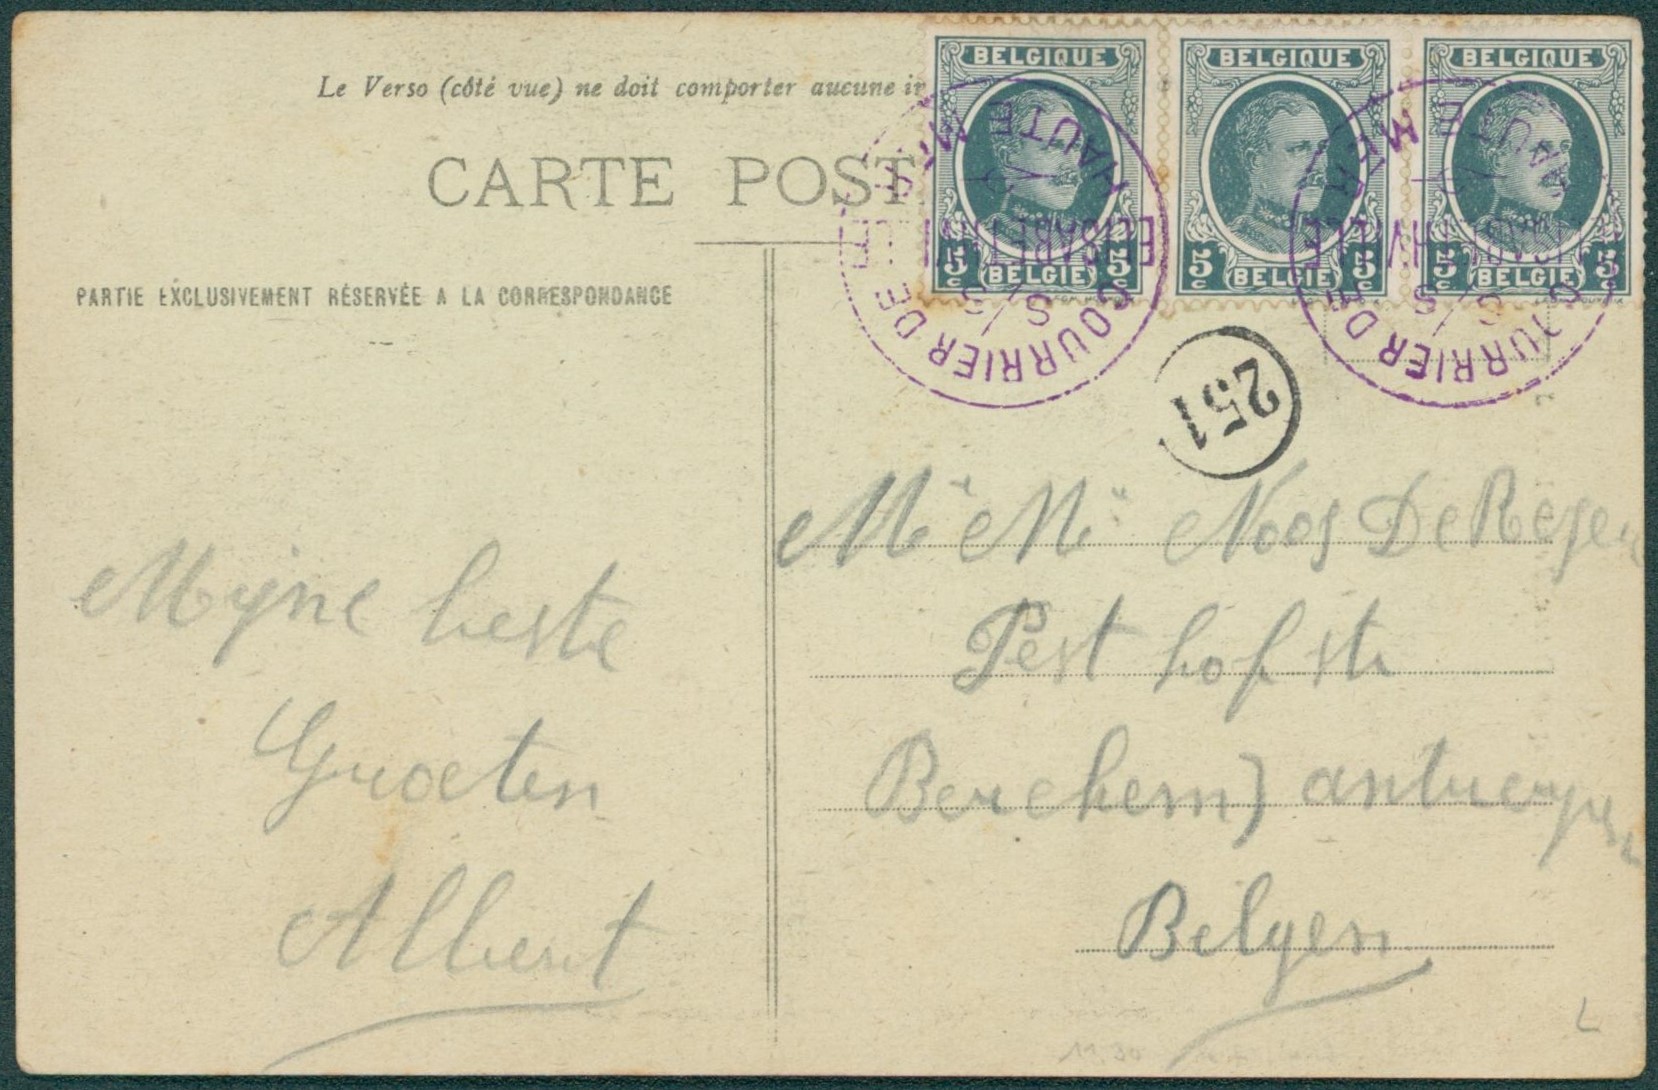 Le Verso (côté vue) ne doit comporter aucune in
CARTE POSTA
PARTIE EXCLUSIVEMENT RÉSERVÉE A LA CORRESPONDANCE
BELGIQUE
5c BELGIË 5c
BELGIQUE
5c BELGIË 5c
BELGIQUE
5c BELGIË 5c
COURRIER DE HAUTE MER
S/S
ELISABETHVILLE
COURRIER DE HAUTE MER
S/S
ELISABETHVILLE
251
Mijne beste
Groeten
Albert
Mr Me Noes De
Pest hof str
Berchem) antwerpen
Belgen
11,30
L